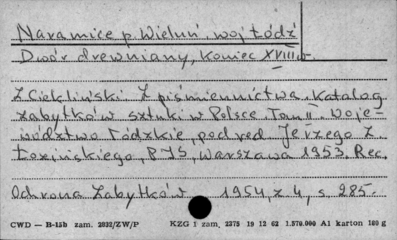 Naramice p. Wieluń, woj Łódź
Dwór drewniany, koniec XVIII w.
Z Ciekliński Z piśmiennictwa. Katalog
zabytków sztuki w Polsce Tom II. Woje-
wództwo Łódzkie, pod red Jerzego Z.
Łozińskiego, PIS, Warszawa 1953 Rec.
Ochrona Zabytków 1954, z 4, s 285.
CWD — B-15b zam. 2832/ZW/P KZG 1 zam, 2375 19 12 62 1.370.000 A1 karton 180 g